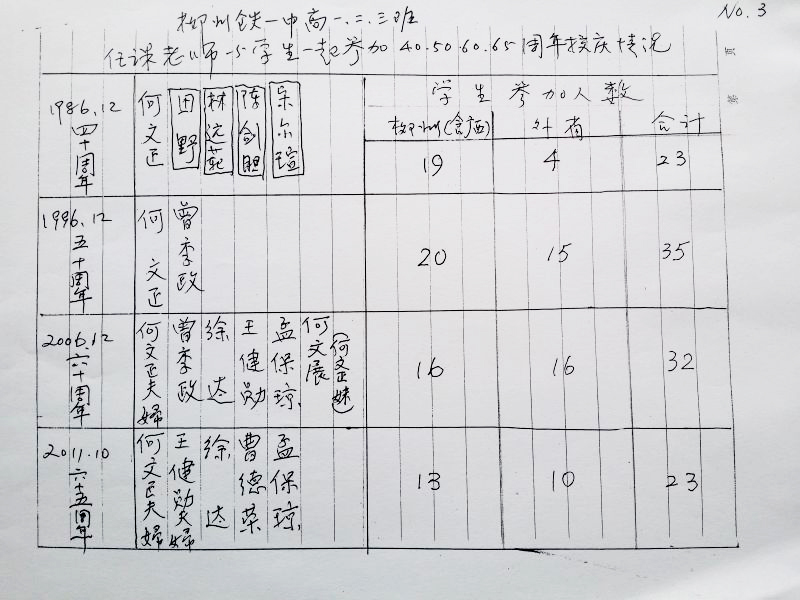 No. 3
柳州铁一中高一.二.三班
任课老师与学生一起参加40.50.60.65周年校庆情况
学生参加人数
柳州(含广西) 外省 合计
1986.12 四十周年 何文正 田野 林远范 陈剑胆 宋尔瑄 19 4 23
1996.12 五十周年 何文正 曾季政 20 15 35
2006.12 六十周年 何文正夫婦 曾季政 徐达 王健勋 孟保琼 何文展(何文正妹) 16 16 32
2011.10 六十五周年 何文正夫婦 王健勋夫婦 徐达 曹德荣 孟保琼 13 10 23
第 页